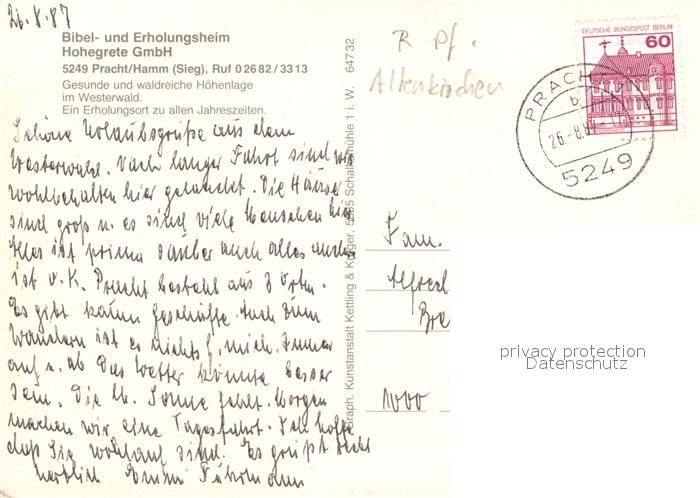 26.8.87
Bibel- und Erholungsheim
Hohegrete GmbH
5249 Pracht/Hamm (Sieg), Ruf 0 26 82 / 33 13
Gesunde und waldreiche Höhenlage
im Westerwald.
Ein Erholungsort zu allen Jahreszeiten.
Schöne Urlaubsgrüße aus dem
Westerwald. Nach langer Fahrt sind wir
wohlbehalten hier gelandet. Die Häuser
sind groß u. es sind viele Menschen hier
Alles ist prima sauber auch alles andere
ist o.K. Pracht besteht aus 3 Orten.
Es gibt kaum Geschäfte. Auch zum
Wandern ist es nichts f. mich. Immer
auf u. ab Das Wetter könnte besser
sein. Die lb. Sonne fehlt. Morgen
machen wir eine Tagesfahrt. Ich hoffe
daß Sie wohlauf sind. Es grüßt recht
herzlich Emmi Fuhrmann
Graph. Kunstanstalt Kettling & Krüger, Schalksmühle 1 i. W. 64732
R Pf.
Altenkirchen
DEUTSCHE BUNDESPOST BERLIN
60
PRACHT
b
26.-8.87
5249
Fam.
Alfred
1000
privacy protection
Datenschutz